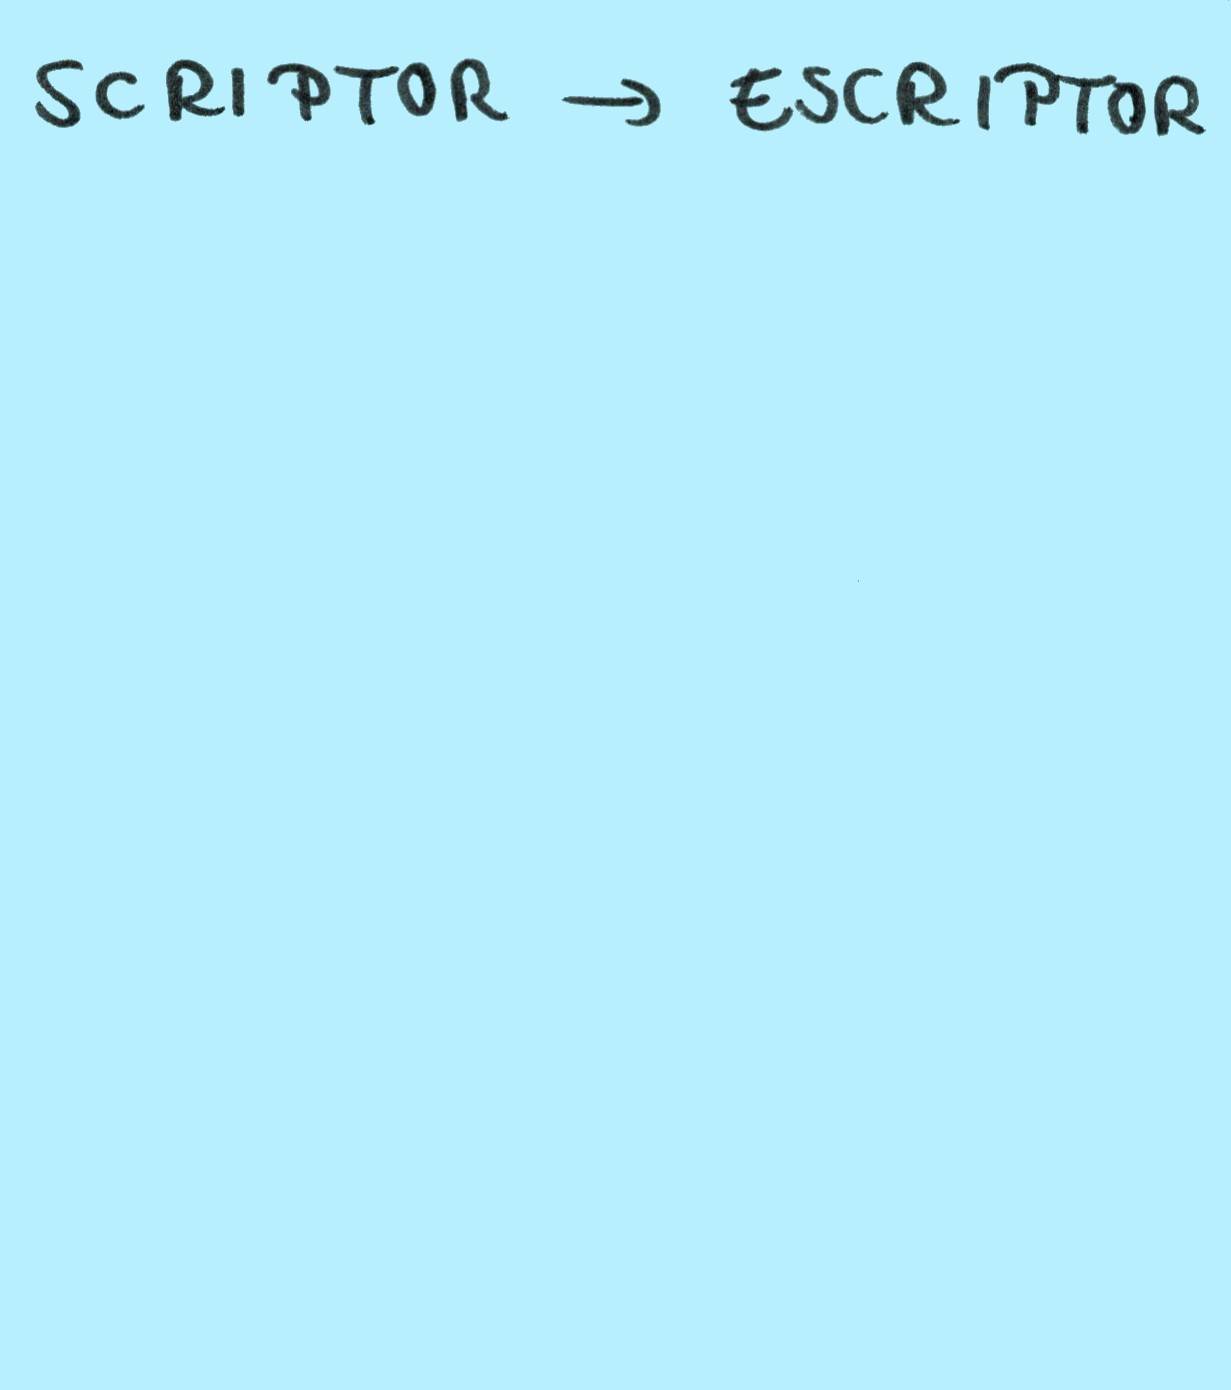 SCRIPTOR → ESCRIPTOR